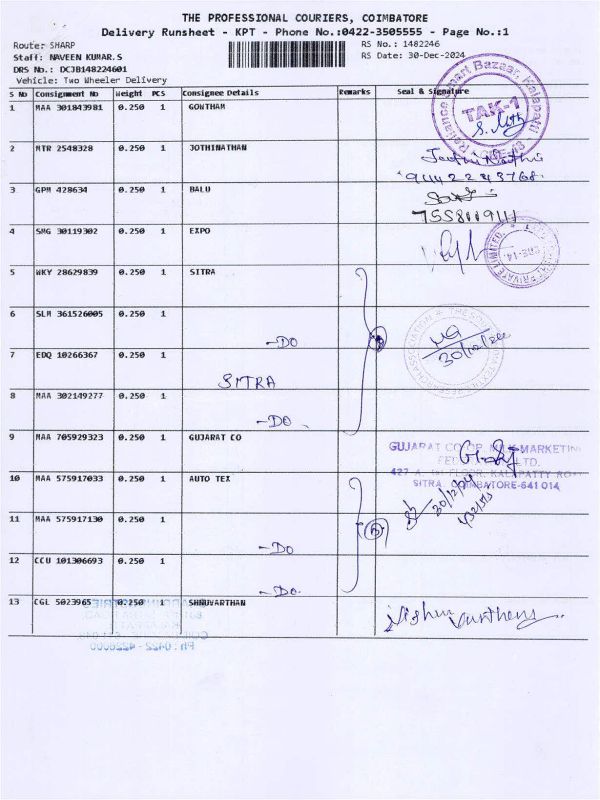 THE PROFESSIONAL COURIERS, COIMBATORE
Delivery Runsheet - KPT - Phone No.:0422-3505555 - Page No.:1
Route: SHARP
RS No.: 1482246
Staff: NAVEEN KUMAR.S
RS Date: 30-Dec-2024
DRS No.: DCJB148224601
Vehicle: Two Wheeler Delivery
S No Consignment No Weight PCS Consignee Details Remarks Seal & signature
1 MAA 301843981 0.250 1 GONTHAM
TAK-1
2 MTR 2548328 0.250 1 JOTHINATHAN
3 GPM 428634 0.250 1 BALU
7558119111
4 SMG 30119302 0.250 1 EXPO
PRIVATE LIMITED
5 WKY 28629839 0.250 1 SITRA
6 SLM 361526005 0.250 1
-DO
30/12/24
7 EDQ 10266367 0.250 1
SITRA
8 MAA 302149277 0.250 1
-DO
9 MAA 705929323 0.250 1 GUJARAT CO
GUJARAT CO.OP. MILK MARKETING
LTD.
SITRA, COIMBATORE-641 014
10 MAA 575917033 0.250 1 AUTO TEX
30/12/24
11 MAA 575917130 0.250 1
-DO
12 CCU 101306693 0.250 1
-DO
13 CGL 5023965 0.250 1 SHRUVARTHAN
Ph : 0422 - 4226000